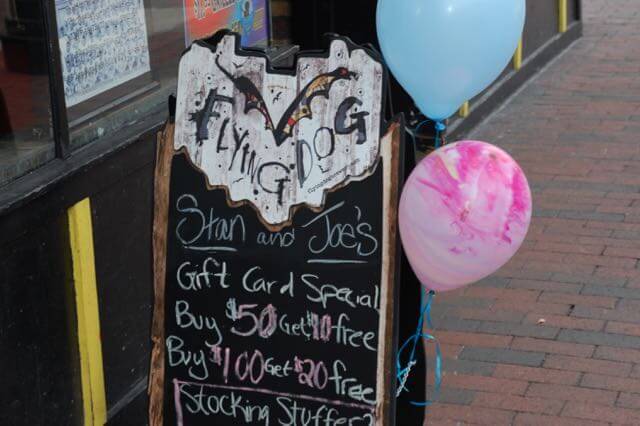 FLYING DOG
Stan and Joe's
Gift Card Special
Buy $50 Get $10 free
Buy $100 Get $20 free
Stocking Stuffer?